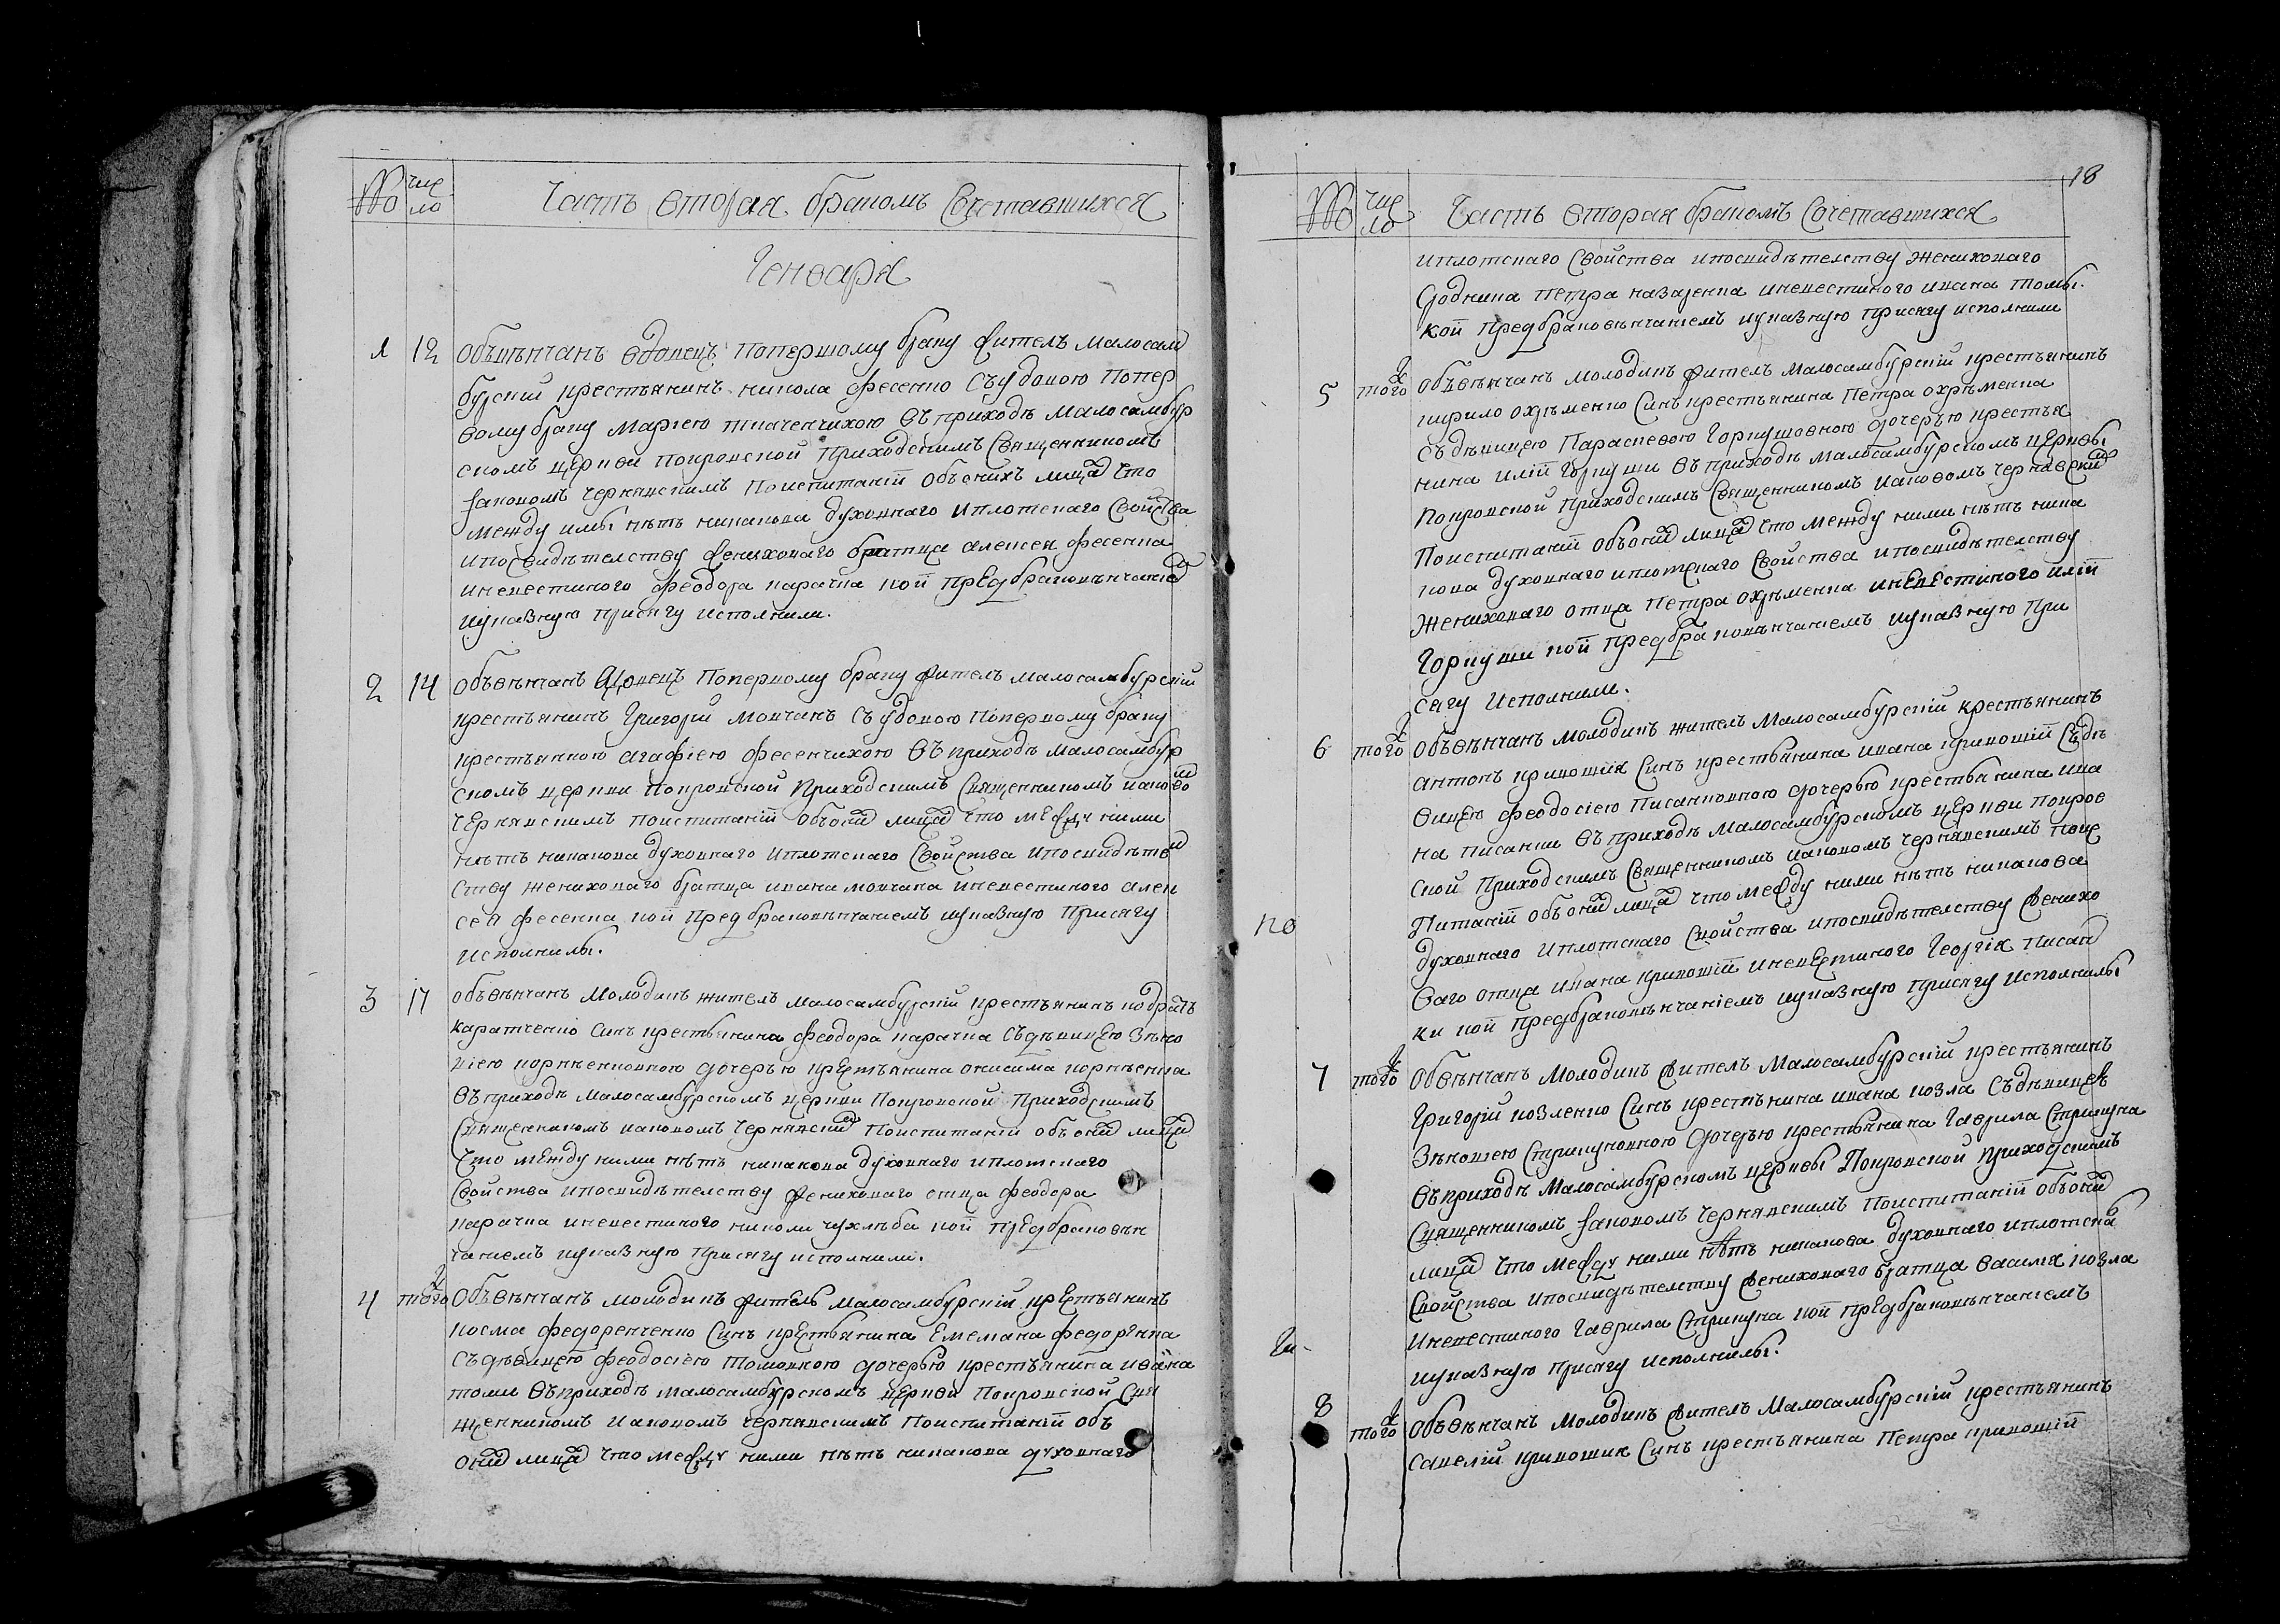 № чис
ло
Часть вторая браком Сочетавшихся
Генваря
1 12 Объвѣнчанъ вдовецъ Попервому браку жителъ Малосам
бурскій крестьянинъ никола фесенко Съудовою Попер
вому браку Маріею ткаченчихою Въприходѣ Малосамбур
скомъ церкви Покровской Приходскимъ Священникомъ
Іаковомъ Чернявскимъ Поиспитаніи Объонихъ лицах Что
между имы нѣтъ никакова духовнаго Иплотскаго Свойства
ипосвидѣтелству женихового братца алексея фесенка
иневестиного феодора карачка кои предбраковѣнчанием
иуказную присягу исполнили.
2 14 Объвѣнчанъ вдовецъ Попервому браку жителъ малосамбурскій
крестьянинъ Григорій Мовчанъ Съудовою Попервому браку
крестьянкою агафіею фесенчихою Въприходѣ малосамбур
скомъ церкви покровской Приходскимъ Священникомъ иаковом
Чернявскимъ поиспитаніи Объоних лицах Что между ними
нѣтъ никакова духовнаго Иплотскаго Свойства Ипосвидѣтел
ству женихового братца ивана мовчана иневестиного алек
сея фесенка кои предбраковѣнчаніемъ иуказную Присягу
исполнилы.
3 17 объвѣнчанъ Молодикъ жителъ малосамбурскій крестьянинъ кодратъ
Каратченко Синъ крестьянина феодора карачка Съдѣвицею Зѣно
віею корнѣенковною дочерью крестьянина онисима корнѣенка
Въприходѣ Малосамбурскомъ церкви Покровской Приходскимъ
Священикомъ иаковомъ Чернявским Поиспитаніи объоних лицах
Что между ними нѣтъ никакова духовнаго иплотскаго
Свойства ипосвидѣтелству женихового отца феодора
карачка иневестиного николи чухлѣба кои предбраковѣн
чаніемъ иуказную присягу исполнили.
4 того ж Объвѣнчанъ молодикъ жителъ малосамбурскій крестьянинъ
косма федоренченко Синъ крестьянина Емелиана федоренка
Съдѣвицею феодосіею томовною дочерью крестьянина ивана
томи Въприходѣ малосамбурскомъ церкви Покровской Свя
щенникомъ Иаковомъ чернявскимъ Поиспитаніи объ
оних лицах Что между ними нѣтъ никакова духовнаго
18
№ чис
ло
Часть вторая браком Сочетавшихся
иплотскаго Свойства ипосвидѣтелству Женихового
Сродника Петра назаренка иневестиного ивана томы.
кои предбраковѣнчаніемъ иуказную присягу исполнили
5 того ж Объвѣнчанъ молодикъ жителъ малосамбурскій крестьянинъ
кирило охрѣменко Синъ крестьянина Петра охрѣменка
Съдѣвицею Параскевою Горкушовною дочерью крестья
нина иліи Горкуши Въприходѣ малосамбурскомъ церквы
Покровской Приходскимъ Священникомъ иаковомъ Чернявским
Поиспитаніи объоних лицах Что между ними нѣтъ ника
кова духовнаго иплотскаго Свойства ипосвидѣтелству
Женихового отца Петра охрѣменка иневестиного иліи
Горкуши кои предбраковѣнчаніемъ иуказную При
сягу Исполнили.
6 того ж Объвѣнчанъ Молодикъ жителъ Малосамбурскій крестьянинъ
антонъ кривошия Синъ крестьянина ивана кривошіи Съдѣ
вицею феодосіею писанковною дочерью крестьянина ива
на писанки Въприходѣ малосамбурскомъ церкви Покров
ской Приходскимъ Священникомъ иаковомъ чернявскимъ поис
Питаніи объоних лицах Что между ними нѣтъ никакова
120
духовнаго Иплотскаго Свойства ипосвидѣтелству женихо
ваго отца ивана кривошіи иневестиного Георгія писан
ки кои Предбраковѣнчаніемъ иуказную присягу исполнилы
7 того ж Обвѣнчанъ Молодикъ жителъ Малосамбурскій крестьянинъ
Григорій козленко Синъ крестьянина ивана козла Съдѣвицею
Зѣновіею Стрикуновною дочерью крестьянина Гаврила Стрикуна
Въприходѣ Малосамбурскомъ церквы Покровской приходскимъ
Священникомъ Іаковомъ Чернявскимъ Поиспитаніи объоних
лицах Что между ними нѣтъ никакова духовнаго иплотска
Свойства ипосвидѣтелству женихового братца василія козла
Иневестиного Гаврила Стрикуна кои предбраковѣнчаніемъ
иуказную присягу исполнилы.
8 того ж Объвѣнчанъ Молодикъ жителъ Малосамбурскій крестьянинъ
Савелій кривошия Синъ крестьянина Петра кривошіи